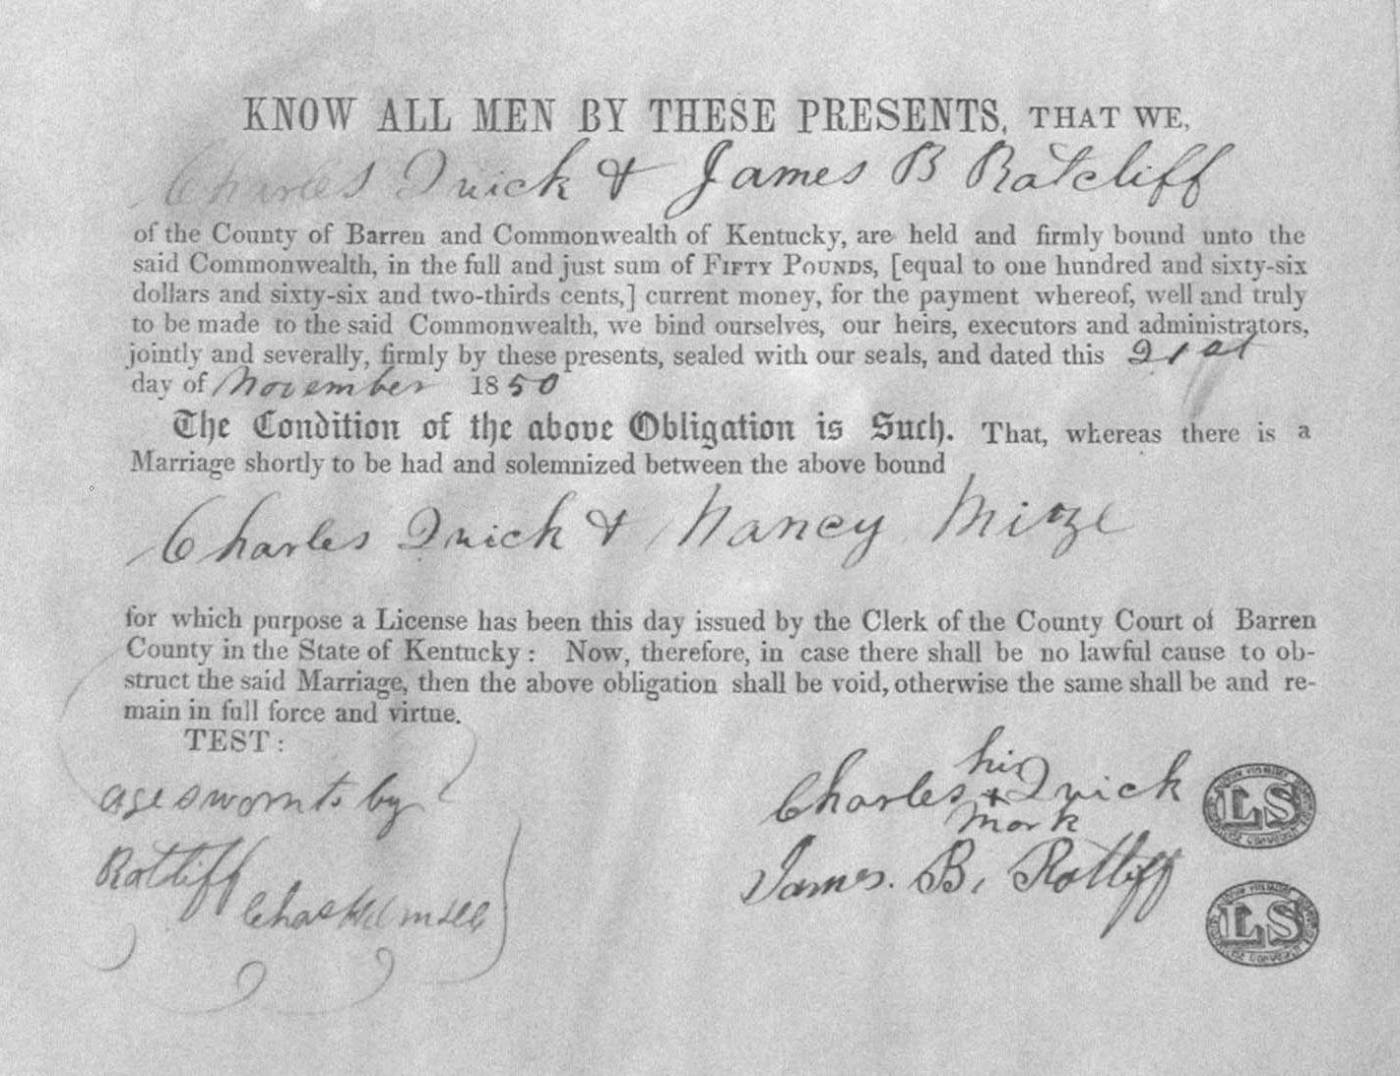 KNOW ALL MEN BY THESE PRESENTS, THAT WE,
Charles Quick & James B Ratcliff
of the County of Barren and Commonwealth of Kentucky, are held and firmly bound unto the
said Commonwealth, in the full and just sum of FIFTY POUNDS, [equal to one hundred and sixty-six
dollars and sixty-six and two-thirds cents,] current money, for the payment whereof, well and truly
to be made to the said Commonwealth, we bind ourselves, our heirs, executors and administrators,
jointly and severally, firmly by these presents, sealed with our seals, and dated this 21st
day of November 1850
The Condition of the above Obligation is Such. That, whereas there is a
Marriage shortly to be had and solemnized between the above bound
Charles Quick & Nancy
for which purpose a License has been this day issued by the Clerk of the County Court of Barren
County in the State of Kentucky: Now, therefore, in case there shall be no lawful cause to ob-
struct the said Marriage, then the above obligation shall be void, otherwise the same shall be and re-
main in full force and virtue.
TEST:
his
Charles + Quick
mark
LS
age sworn to by
James. B. Ratliff
LS
Ratliff
Chas